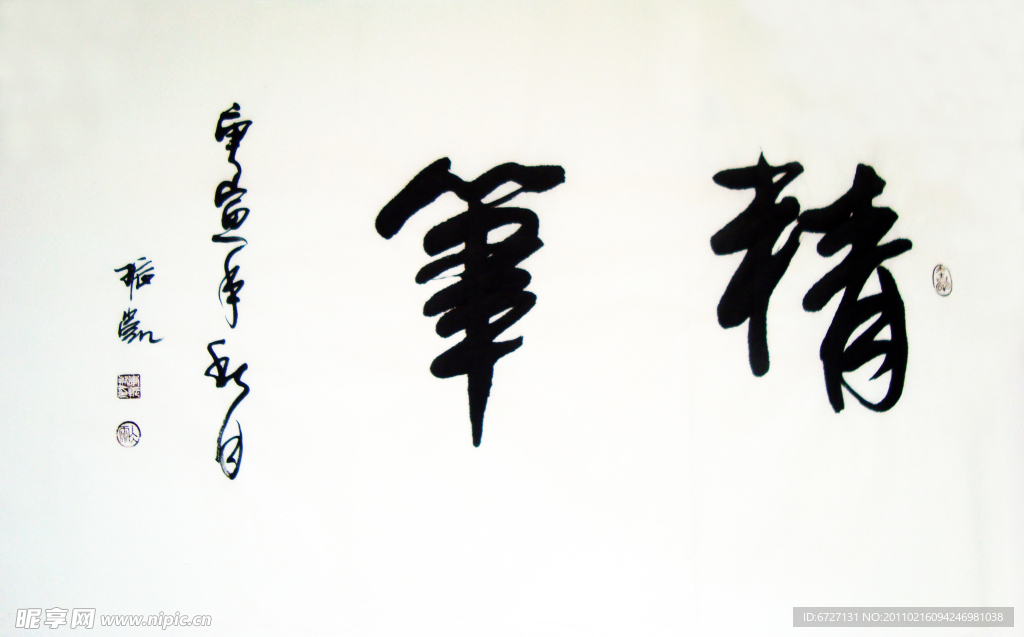 精筆
庚寅年秋月
振凯
昵享网 www.nipic.cn
ID:6727131 NO:20110216094246981038